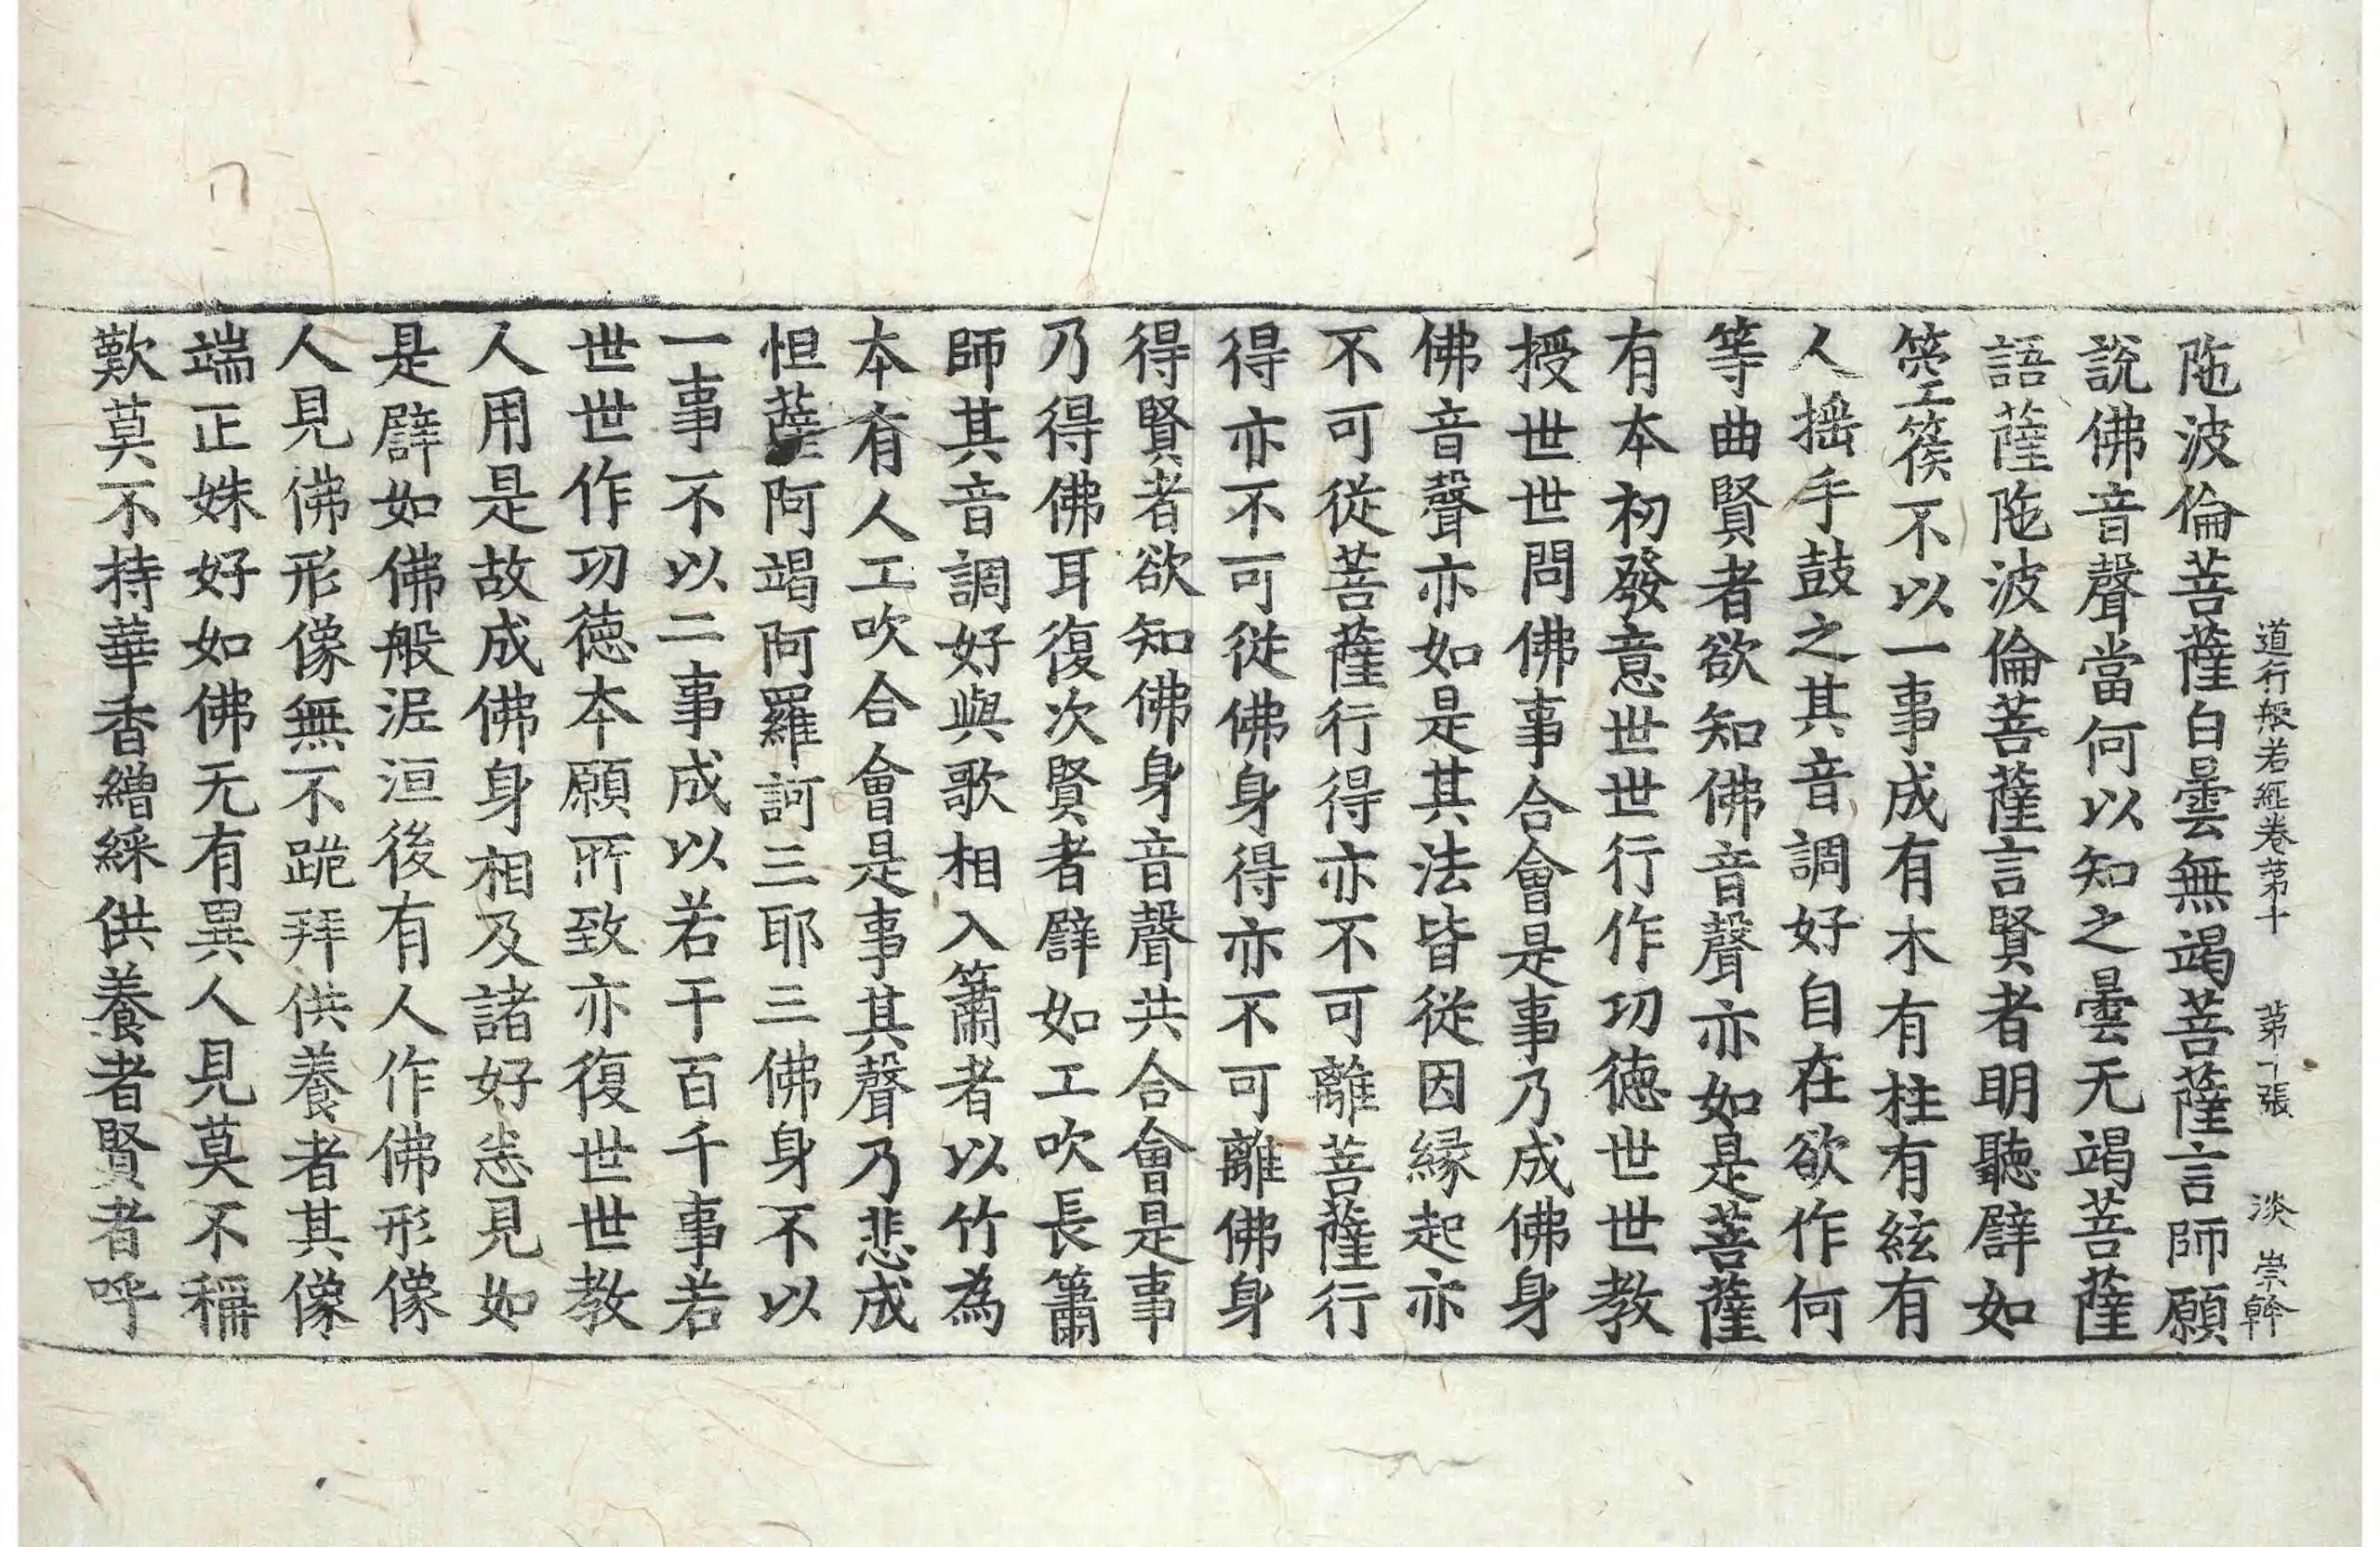 道行般若經卷第十 第十張 淡 崇幹
陁波倫菩薩白曇無竭菩薩言師願
說佛音聲當何以知之曇无竭菩薩
語薩陁波倫菩薩言賢者明聽辟如
箜篌不以一事成有木有柱有絃有
人搖手鼓之其音調好自在欲作何
等曲賢者欲知佛音聲亦如是菩薩
有本初發意世世行作功德世世教
授世世問佛事合會是事乃成佛身
佛音聲亦如是其法皆從因緣起亦
不可從菩薩行得亦不可離菩薩行
得亦不可從佛身得亦不可離佛身
得賢者欲知佛身音聲共合會是事
乃得佛耳復次賢者辟如工吹長簫
師其音調好與歌相入簫者以竹為
本有人工吹合會是事其聲乃悲成
怛薩阿竭阿羅訶三耶三佛身不以
一事不以二事成以若干百千事若
世世作功德本願所致亦復世世教
人用是故成佛身相及諸好悉見如
是辟如佛般泥洹後有人作佛形像
人見佛形像無不跪拜供養者其像
端正姝好如佛无有異人見莫不稱
歎莫不持華香繒綵供養者賢者呼